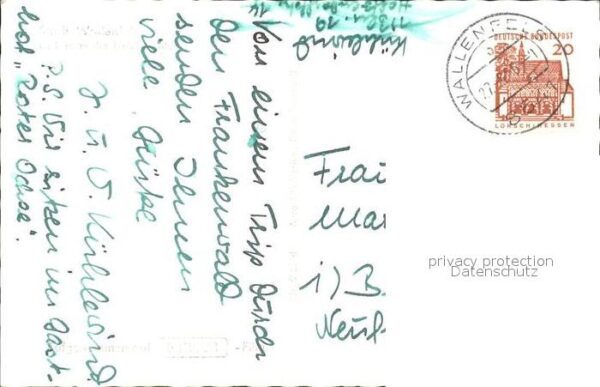 Von einem Trip durch
den Frankenwald
senden Ihnen
viele Grüße
J. u. V. Kühlewind
P.S. Wir sitzen im Gast-
hof „Roter Ochse".
Kühlewind
WALLENFELS
DEUTSCHE BUNDESPOST
20
LORSCH/HESSEN
Frau
Mar
i) B.
Neuf
privacy protection
Datenschutz